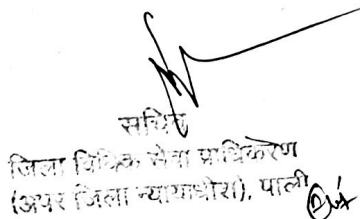 सचिव
जिला विधिक सेवा प्राधिकरण
(अपर जिला न्यायाधीश), पाली